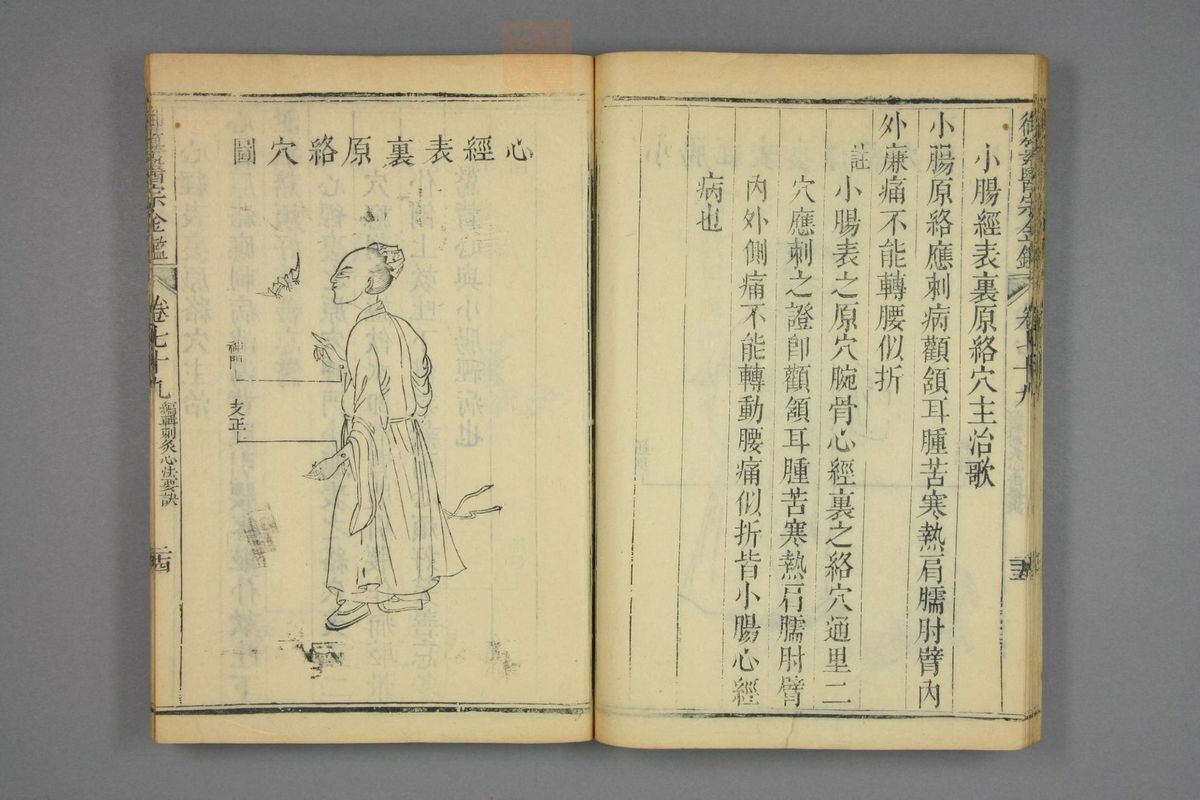 御纂醫宗金鑑 卷七十九
小腸經表裏原絡穴主治歌
小腸原絡應刺病顴頷耳腫苦寒熱肩臑肘臂內
外廉痛不能轉腰似折
註 小腸表之原穴腕骨心經裏之絡穴通里二
穴應刺之證卽顴頷耳腫苦寒熱肩臑肘臂
內外側痛不能轉動腰痛似折皆小腸心經
病也
心經表裏原絡穴圖
神門
支正
御纂醫宗金鑑 卷七十九 編輯刺灸心法要訣